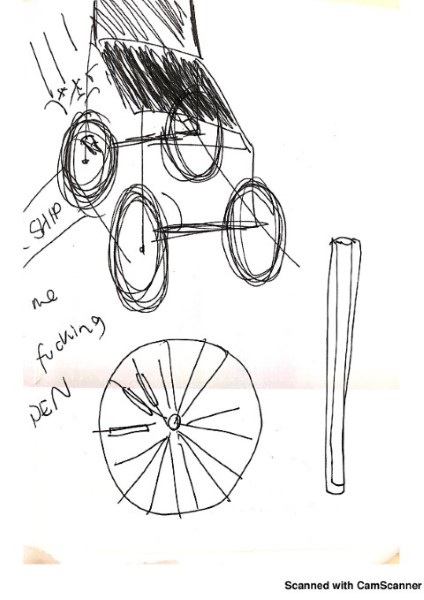 SHIP
me
fucking
PEN
Scanned with CamScanner